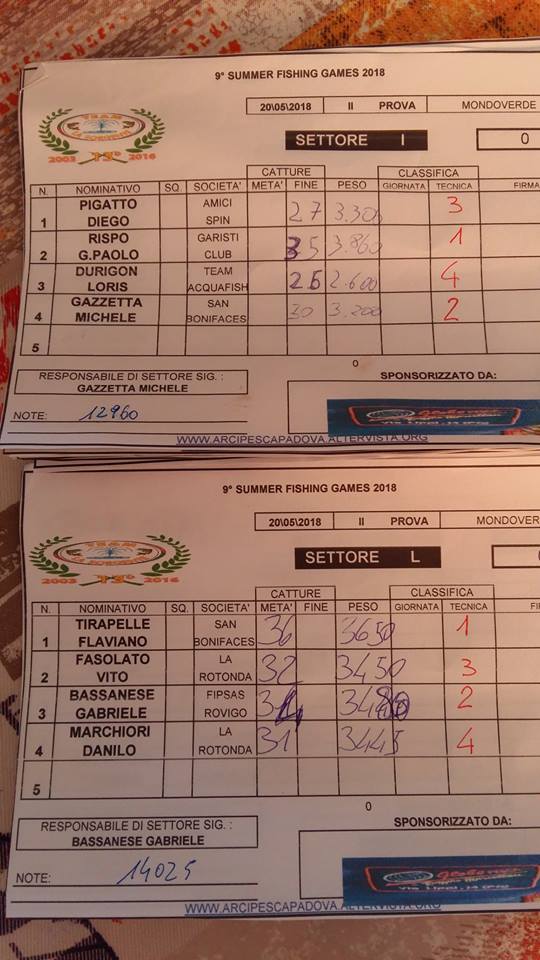 9° SUMMER FISHING GAMES 2018
TEAM
LA ROTONDA
2003 13° 2016
20\05\2018 II PROVA MONDOVERDE
SETTORE I 0
CATTURE CLASSIFICA
N. NOMINATIVO SQ. SOCIETA' META' FINE PESO GIORNATA TECNICA FIRMA
1 PIGATTO DIEGO AMICI SPIN 27 3.300 3
2 RISPO G.PAOLO GARISTI CLUB 35 3.860 1
3 DURIGON LORIS TEAM ACQUAFISH 26 2.600 4
4 GAZZETTA MICHELE SAN BONIFACES 30 3.200 2
5
0
RESPONSABILE DI SETTORE SIG. : SPONSORIZZATO DA:
GAZZETTA MICHELE
NOTE: 12960
WWW.ARCIPESCAPADOVA.ALTERVISTA.ORG
9° SUMMER FISHING GAMES 2018
TEAM
LA ROTONDA
2003 13° 2016
20\05\2018 II PROVA MONDOVERDE
SETTORE L
CATTURE CLASSIFICA
N. NOMINATIVO SQ. SOCIETA' META' FINE PESO GIORNATA TECNICA
1 TIRAPELLE FLAVIANO SAN BONIFACES 36 3650 1
2 FASOLATO VITO LA ROTONDA 32 3450 3
3 BASSANESE GABRIELE FIPSAS ROVIGO 34 3480 2
4 MARCHIORI DANILO LA ROTONDA 31 3445 4
5
0
RESPONSABILE DI SETTORE SIG. : SPONSORIZZATO DA:
BASSANESE GABRIELE
NOTE: 14025
WWW.ARCIPESCAPADOVA.ALTERVISTA.ORG